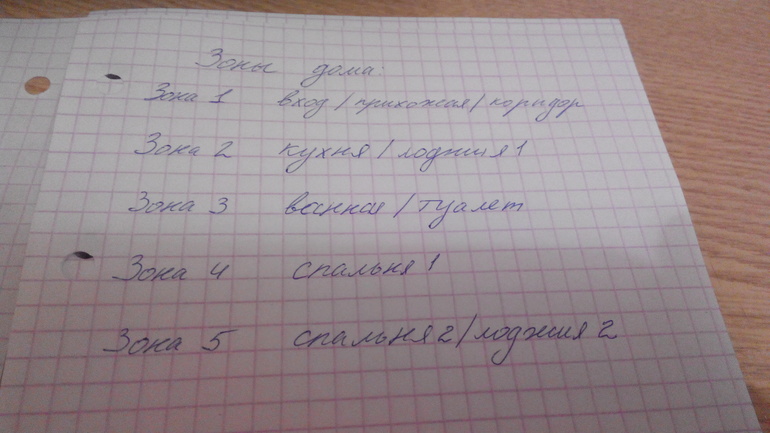 Зоны дома:
Зона 1 вход/прихожая/коридор
Зона 2 кухня/лоджия 1
Зона 3 ванная/туалет
Зона 4 спальня 1
Зона 5 спальня 2/лоджия 2